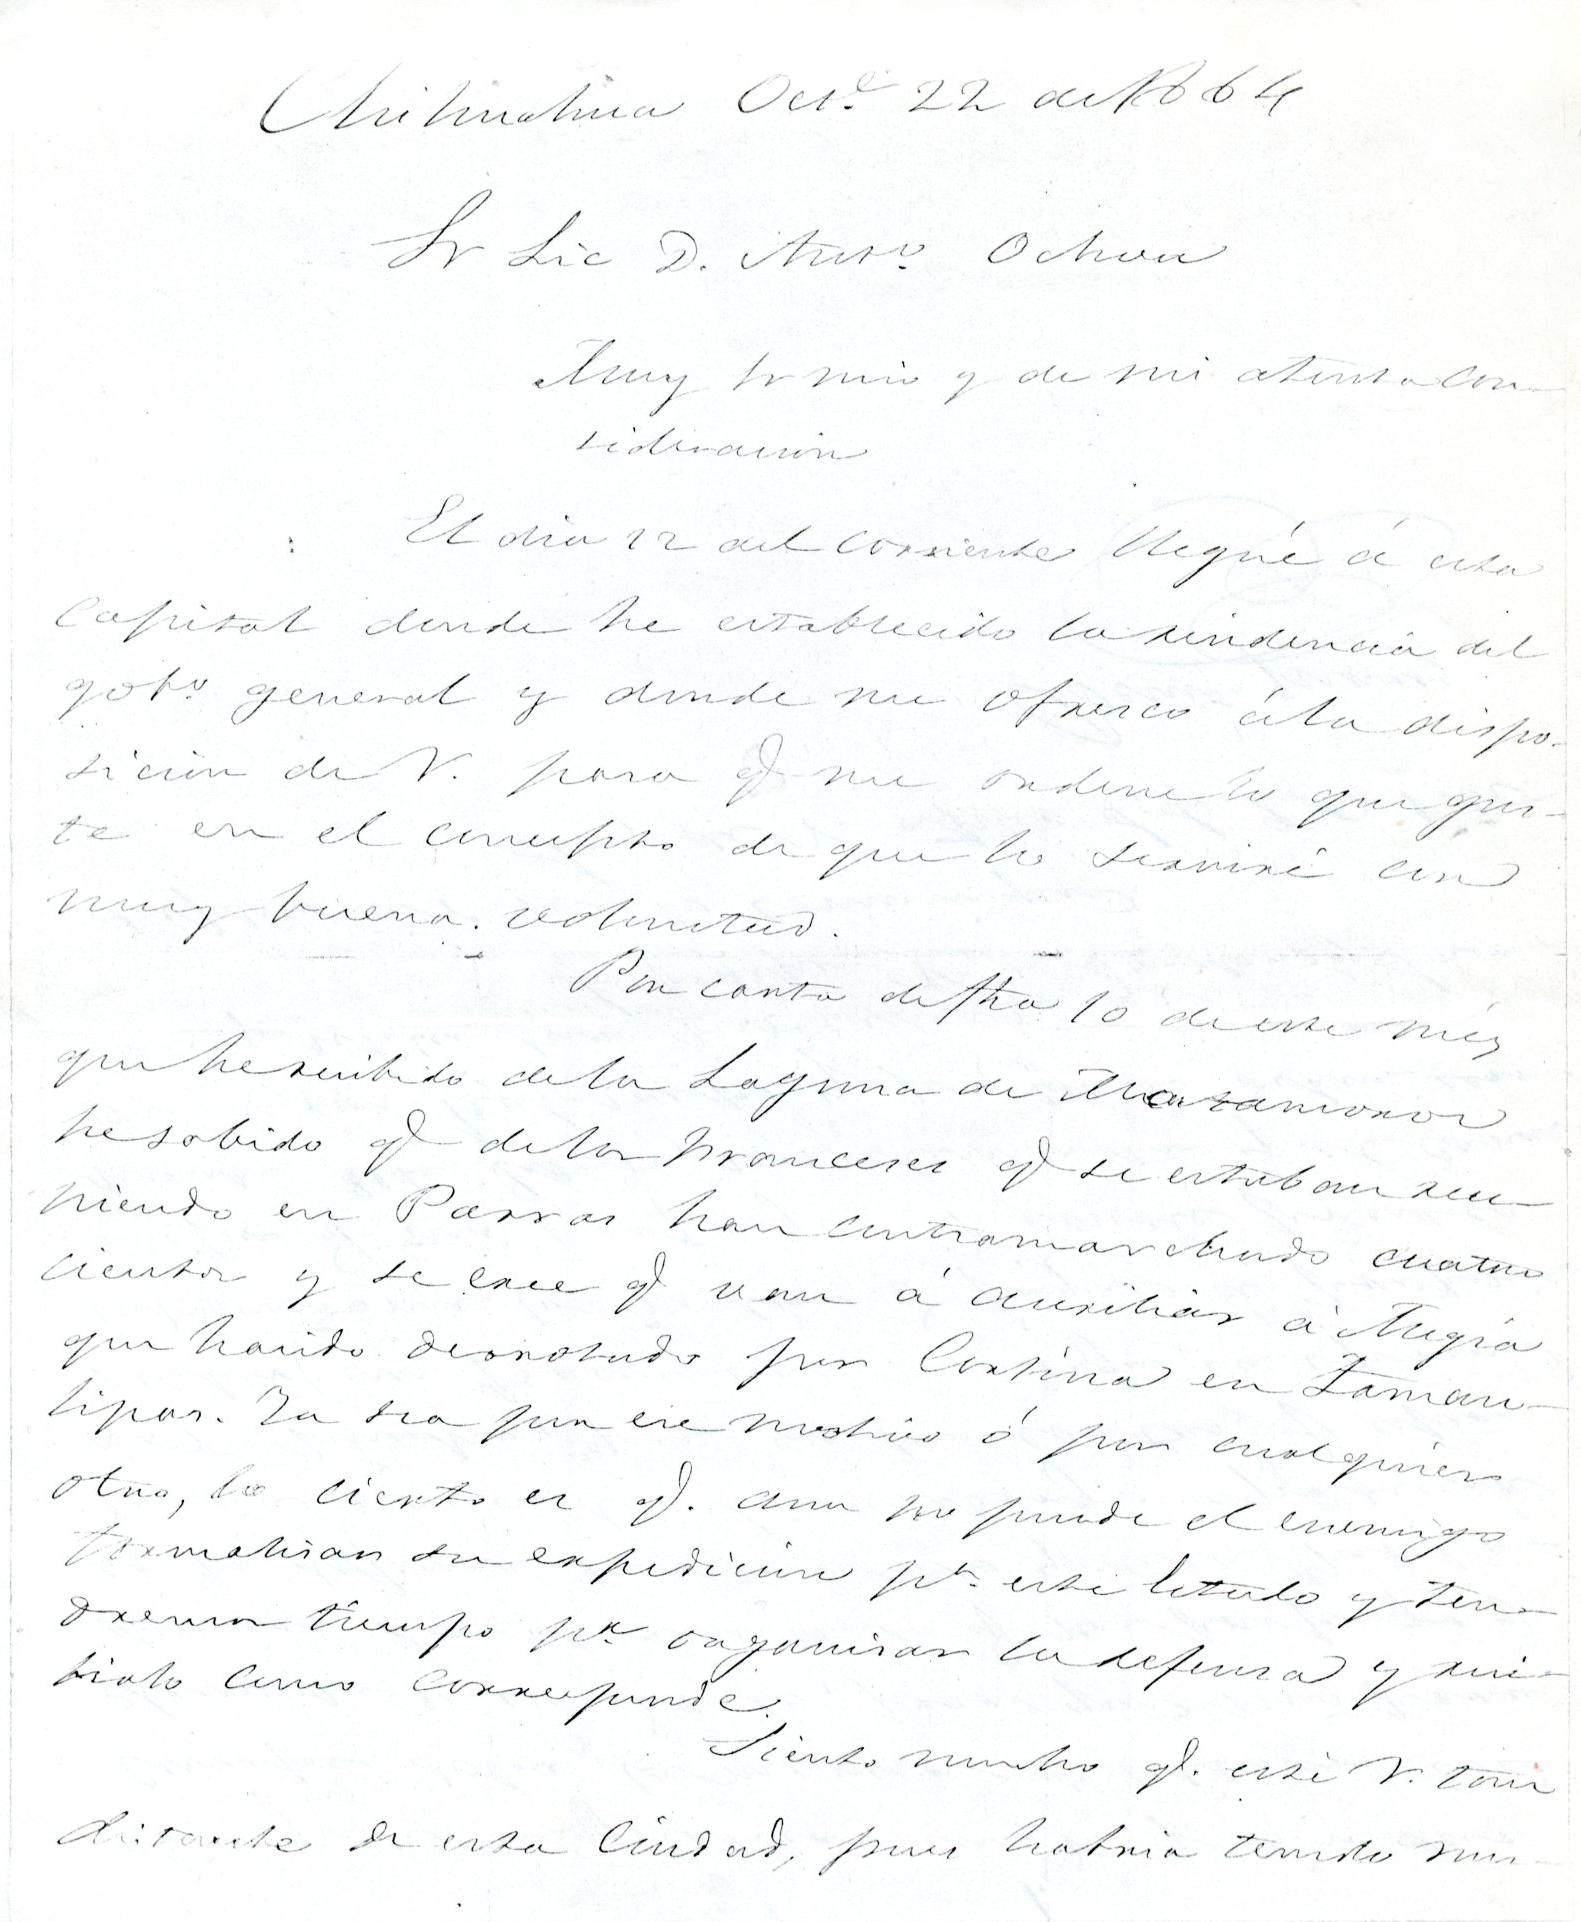 Chihuahua Oct.e 22 de 1864
Sr Lic D. Anto. Ochoa
Muy Sr mio y de mi atenta con-
sideracion
El dia 12 del corriente llegué á esta
Capital donde he establecido la recidencia del
gobo. general y donde me ofresco á la dispo-
sicion de V. para q. me ordene lo que gus-
te en el concepto de que lo serviré con
muy buena voluntad.
Por carta de fha 10 de este més
que he recibido de la Laguna de Matamoros
he sabido q. de los franceses q. se estaban reu-
niendo en Parras han contramarchado cuatro
cientos y se cree q. van á auxiliar á Mejia
que ha sido derrotado por Cortina en Tamau-
lipas. Ya sea por ese motivo ó por cualquiera
otro, lo cierto es q. aun no puede el enemigo
formalisar su expedicion pa. este Estado y ten-
dremos tiempo pa. organisar la defensa y reci-
birlo como corresponde.
Siento mucho q. esté V. tan
distante de esta Ciudad, pues habria tenido mu-